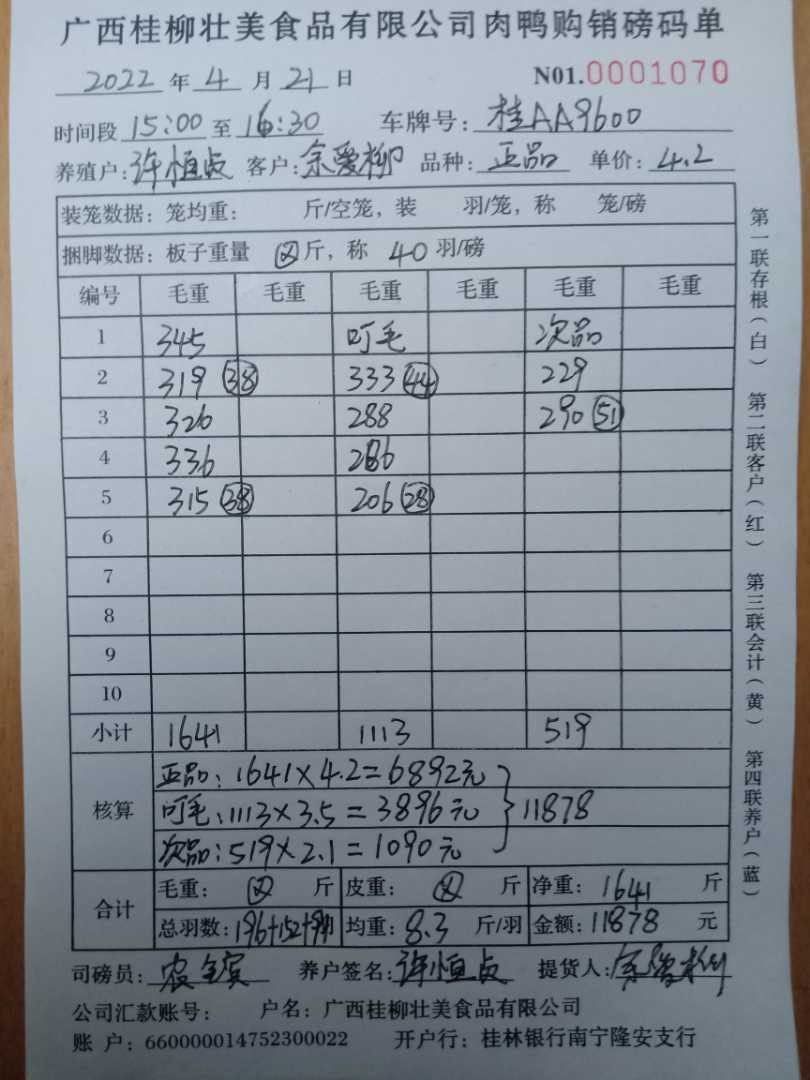 广西桂柳壮美食品有限公司肉鸭购销磅码单
2022 年 4 月 21 日 N01.0001070
时间段 15:00 至 16:30 车牌号: 桂AA9600
养殖户: 许恒贞 客户: 余爱柳 品种: 正品 单价: 4.2
装笼数据: 笼均重: 斤/空笼, 装 羽/笼, 称 笼/磅
捆脚数据: 板子重量 斤, 称 40 羽/磅
编号 毛重 毛重 毛重 毛重 毛重 毛重
1 345 叮毛 次品
2 319 38 333 44 229
3 326 288 290 51
4 336 286
5 315 38 206 28
6
7
8
9
10
小计 1641 1113 519
核算
正品: 1641×4.2=6892元
叮毛: 1113×3.5=3896元 11878
次品: 519×2.1=1090元
合计
毛重: 斤 皮重: 斤 净重: 1641 斤
总羽数: 196+152+ 均重: 8.3 斤/羽 金额: 11878 元
司磅员: 养户签名: 许恒贞 提货人:
公司汇款账号: 户名: 广西桂柳壮美食品有限公司
账 户: 660000014752300022 开户行: 桂林银行南宁隆安支行
第一联存根(白) 第二联客户(红) 第三联会计(黄) 第四联养户(蓝)